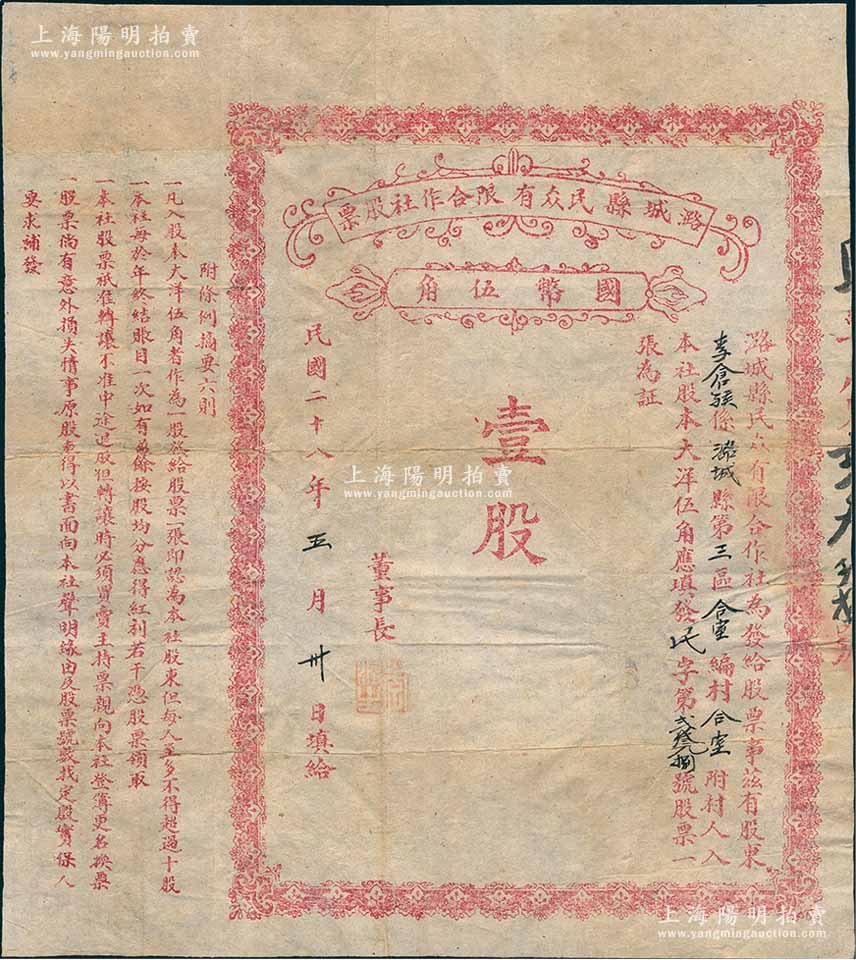 上海陽明拍賣
www.yangmingauction.com
潞城縣民众有限合作社股票
國幣伍角
潞城縣民众有限合作社為發給股票事茲有股東
李倉孩係潞城縣第三區合室編村合室附村人入
本社股本大洋伍角應填發民字第 號股票一
張為証
壹股
董事長
民國二十八年五月卅日填給
附條例摘要六則
一凡入股本大洋伍角者作為一股發給股票一張即認為本社股東但每人至多不得超過十股
一本社每於年終結賬目一次如有盈餘按股均分應得紅利若干憑股票領取
一本社股票祇准轉讓不准中途退股但轉讓時必須買賣主持票親向本社登簿更名換票
一股票倘有意外損失情事原股東得以書面向本社聲明緣由及股票號數找定殷實保人
要求補發
上海陽明拍賣
www.yangmingauction.com
上海陽明拍賣
www.yangmingauction.com